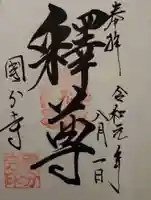 奉拝
令和元年
八月一日
釋尊
國分寺